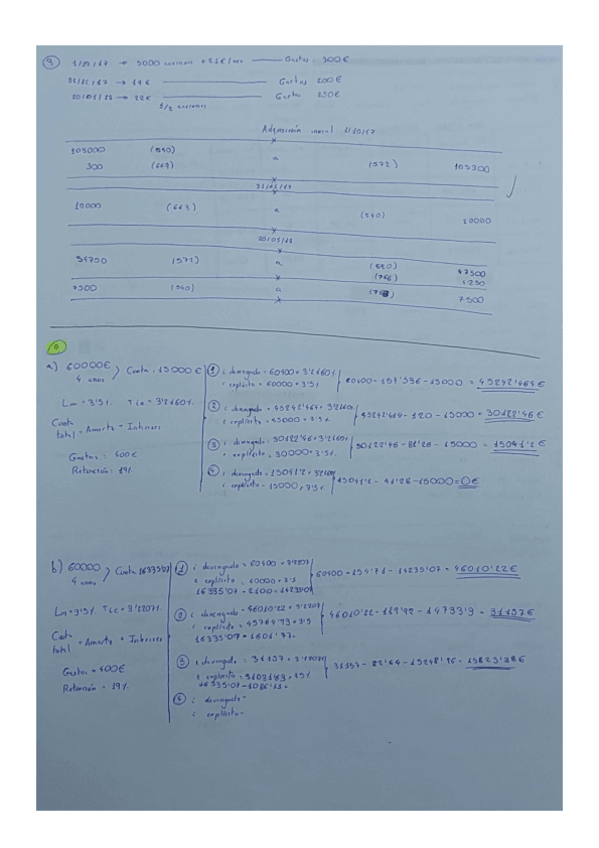 9 1/10/17 → 5000 acciones × 21€/acc Gastos 300€
31/12/17 → 17€ Gastos 200€
20/01/18 → 22€ Gastos 250€
1/2 acciones
Adquisición inicial 1/10/17
105000 (540) a (572) 105300
300 (669)
31/12/17
20000 (663) a (540) 20000
20/01/18
54750 (572) a (540) 47500
(766) 7250
7500 (540) a (763) 7500
a) 60000€ 4 años Cuota: 15000€
Lm = 3'5% Tie = 3'2160%
Cuota total = Amortz + Intereses
Gastos: 400€
Retención: 19%
1 i devengado = 60400 × 3'2160%
i explícito = 60000 × 3'5%
60400 - 157'536 - 15000 = 45242'464€
2 i devengado = 45242'464 × 3'2160%
i explícito = 45000 × 3'5%
45242'464 - 120 - 15000 = 30122'46€
3 i devengado: 30122'46 × 3'2160%
i explícito: 30000 × 3'5%
30122'46 - 81'26 - 15000 = 15041'2€
4 i devengado: 15041'2 × 3'2160%
i explícito = 15000 × 3'5%
15041'2 - 41'28 - 15000 = 0€
b) 60000 4 años Cuota 16335'07
Lm = 3'5% Tie = 3'2207%
Cuota total = Amortz + Intereses
Gastos = 400€
Retención = 19%
1 i devengado = 60400 × 3'2207
i explícito = 60000 × 3'5
16335'07 - 2100 = 14235'07
60400 - 154'71 - 14235'07 = 46010'22€
2 i devengado = 46010'22 × 3'2207
i explícito = 45764'93 × 3'5
16335'07 - 1601'77 =
46010'22 - 119'92 - 14733'3 = 31157€
3 i devengado = 31157 × 3'2207%
i explícito = 31031'63 × 3'5%
16335'07 - 1086'11 =
31157 - 82'64 - 15248'96 = 15825'38€
4 i devengado =
i explícito =